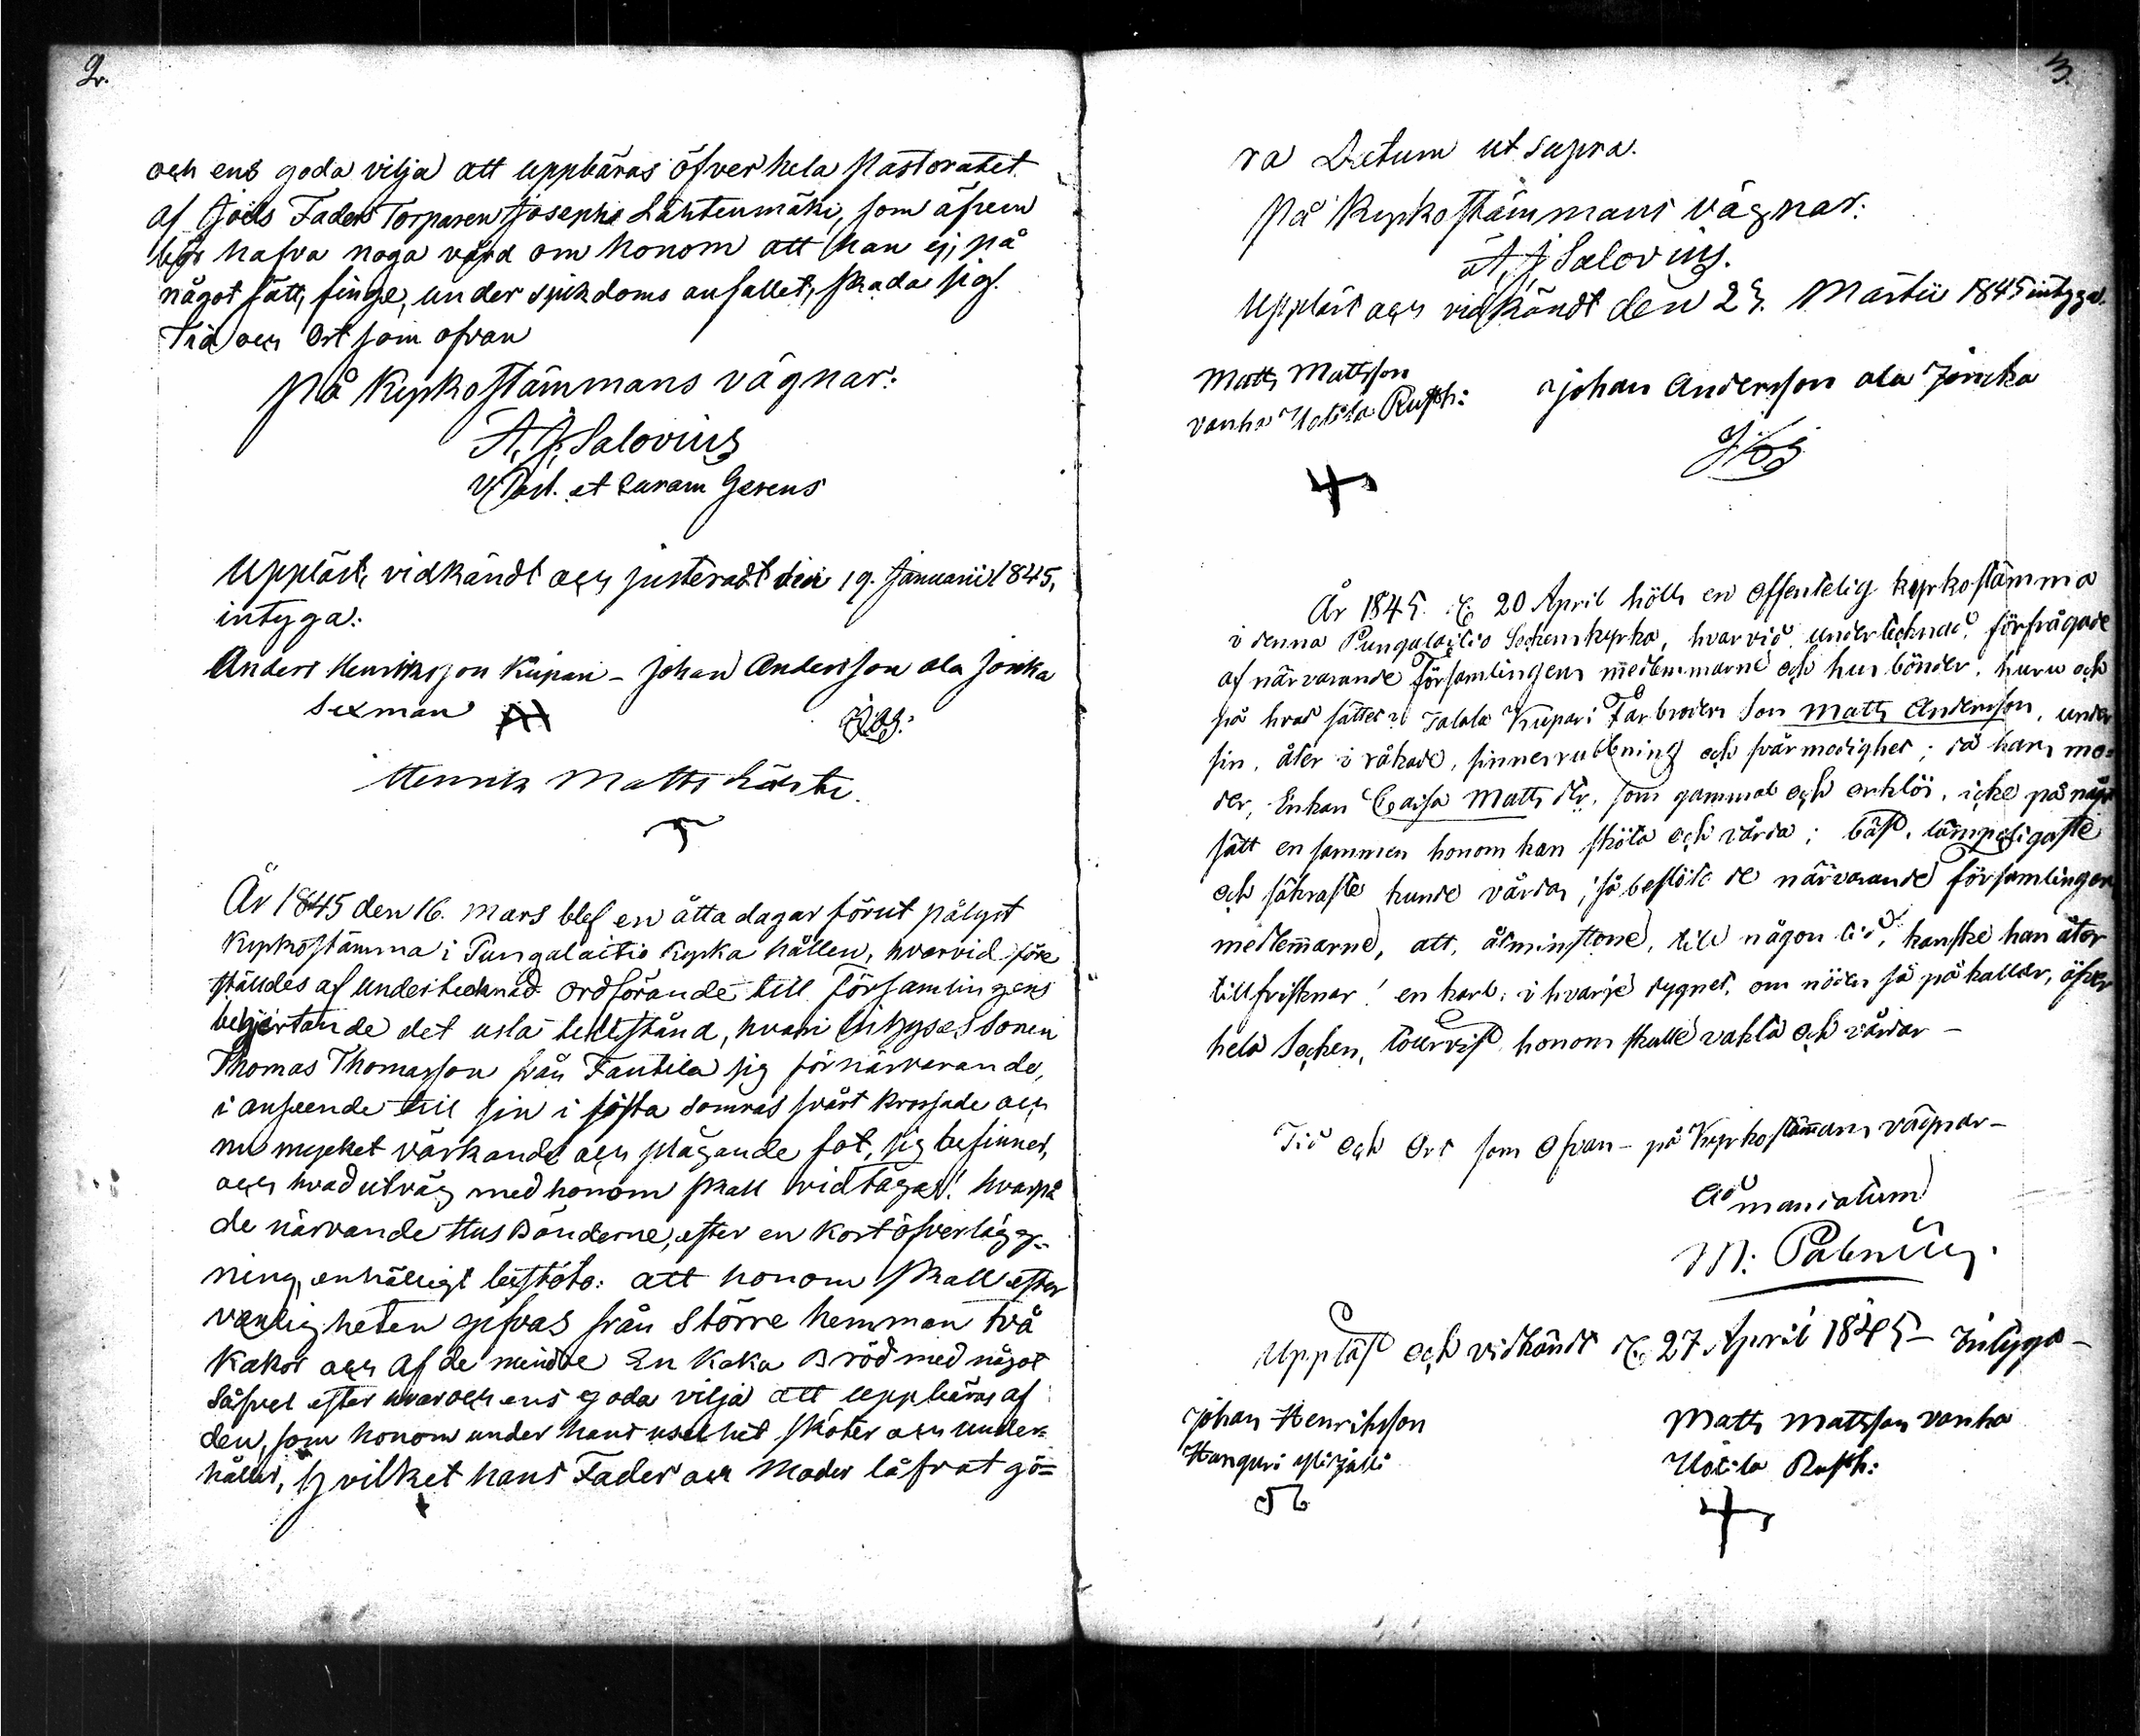 2.
och ens goda vilja att uppbäras öfver hela Pastoratet
af Joels Fader Torparen Josephi Lähtenmäki, som äfven
bör hafva noga vård om honom att han ej, på
något sätt, finge, under sjukdoms anfallet, skada sig.
Tid och Ort som ofvan
På Kyrkostämmans vägnar:
A. J. Salovius
V. Past. et Curam Gerens
Uppläst, vidkändt och justeradt den 19. Januarii 1845,
intyga:
Anders Henriksson Kupari - Johan Andersson ala Jonka
Sexman
Henrik Matts
År 1845 den 16. Mars blef en åtta dagar förut pålyst
Kyrkostämma i Pungalaitio Kyrka hållen, hvarvid före
ställdes af undertecknad Ordförande till Församlingens
behjertande det usla tillstånd, hvari Inhyses Sonen
Thomas Thomasson från Fantila sig förnärvarande,
i anseende till sin i sista somras svårt krossade och
nu mycket värkande och plågande fot, sig befinner,
och hvad utväg med honom skall vidtagas! hvarpå
de närvande Husbönderne, efter en kort öfverlägg-
ning, enhälligt beslöto: att honom skall efter
vanligheten gifvas från större hemman två
Kakor och af de mindre En Kaka Bröd med något
Såfvel efter hvar och ens goda vilja att uppbäras af
den, som honom under hans uselhet sköter och under-
håller, hvilket hans Fader och Moder låfvat gö=
3.
ra Actum ut supra.
På Kyrkostämmans vägnar:
A. J. Salovius.
Uppläst och vidkändt den 23. Martii 1845 intyga.
Matts Mattsson
vanha Uotila Rusth:
Johan Andersson ala Joncka
År 1845. d. 20 April hölls en Offentelig kyrkostämma
i denna Pungalaitio Sockenkyrka, hvarvid undertecknad, förfrågade
af närvarande Församlingens medlemmarne och husbönder, huru och
på hvad sätt Talala Kupari Farbroders Son Matts Andersson, under
sin, åter i råkade, sinnesrubbning och svårmodighet; då hans mo=
der, Enkan Caisa Mattsdr, som gammal och orklös, icke på något
sätt ensammen honom kan sköta och vårda; bäst, lämpeligaste
och säkraste kunde vårdas, så beslöto de närvarande församlingen
medlemmarne, att, åtminstone, till någon tid, kanske han åter
tillfrisknar! en karl, i hvarje dygnet, om nöden så påkallar, öfver
hela Socken, tourvist honom skulle vakta och vårdar -
Tid och Ort som Ofvan - på Kyrkostämmans vägnar -
Ad mandatum
M: Palenius.
Uppläst och vidkändt d. 27 April 1845 - Intyga -
Johan Henriksson
Hanguri
Matts Mattsson vanha
Uotila Rusth: